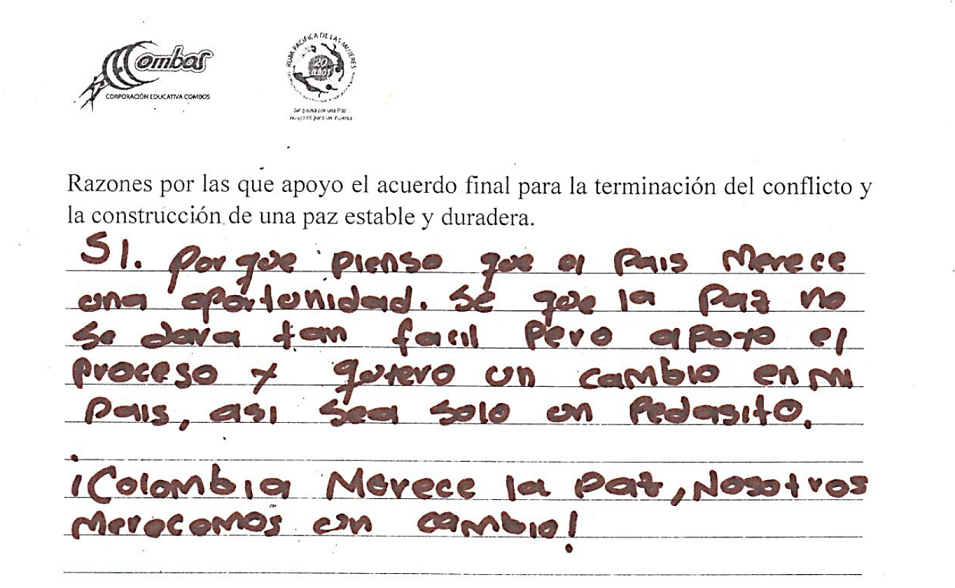 Combos
CORPORACIÓN EDUCATIVA COMBOS
RUTA PACÍFICA DE LAS MUJERES
20 años
Razones por las que apoyo el acuerdo final para la terminación del conflicto y
la construcción de una paz estable y duradera.
SI. Porque pienso que el Pais Merece
una oportunidad. Sé que la Paz no
Se dara tan facil Pero apoyo el
Proceso y quiero un cambio en mi
Pais, asi sea solo un Pedasito.
¡Colombia Merece la Paz, Nosotros
Merecemos un cambio!